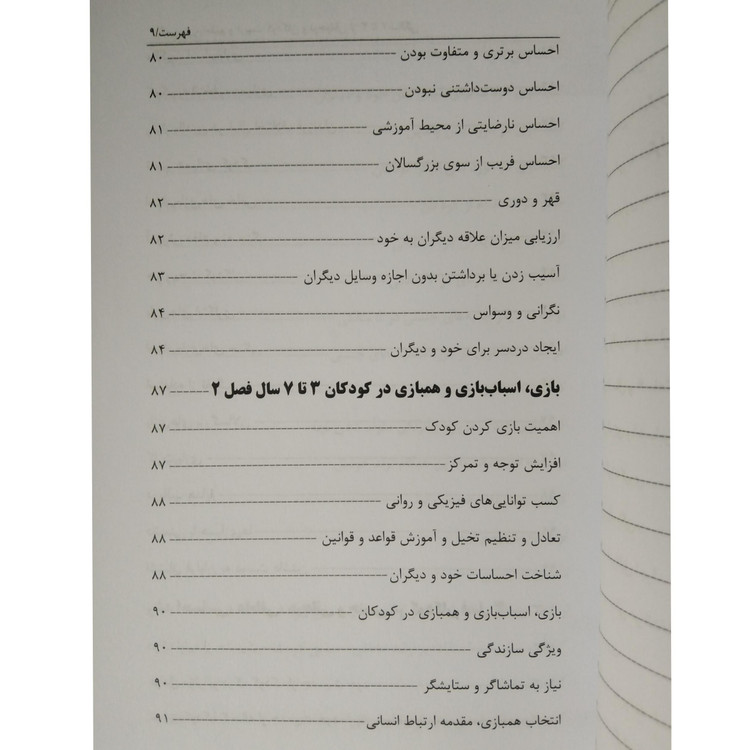 فهرست/۹
احساس برتری و متفاوت بودن ۸۰
احساس دوست‌داشتنی نبودن ۸۰
احساس نارضایتی از محیط آموزشی ۸۱
احساس فریب از سوی بزرگسالان ۸۱
قهر و دوری ۸۲
ارزیابی میزان علاقه دیگران به خود ۸۲
آسیب زدن یا برداشتن بدون اجازه وسایل دیگران ۸۳
نگرانی و وسواس ۸۴
ایجاد دردسر برای خود و دیگران ۸۴
بازی، اسباب‌بازی و همبازی در کودکان ۳ تا ۷ سال فصل ۲ ۸۷
اهمیت بازی کردن کودک ۸۷
افزایش توجه و تمرکز ۸۷
کسب توانایی‌های فیزیکی و روانی ۸۸
تعادل و تنظیم تخیل و آموزش قواعد و قوانین ۸۸
شناخت احساسات خود و دیگران ۸۸
بازی، اسباب‌بازی و همبازی در کودکان ۹۰
ویژگی سازندگی ۹۰
نیاز به تماشاگر و ستایشگر ۹۰
انتخاب همبازی، مقدمه ارتباط انسانی ۹۱